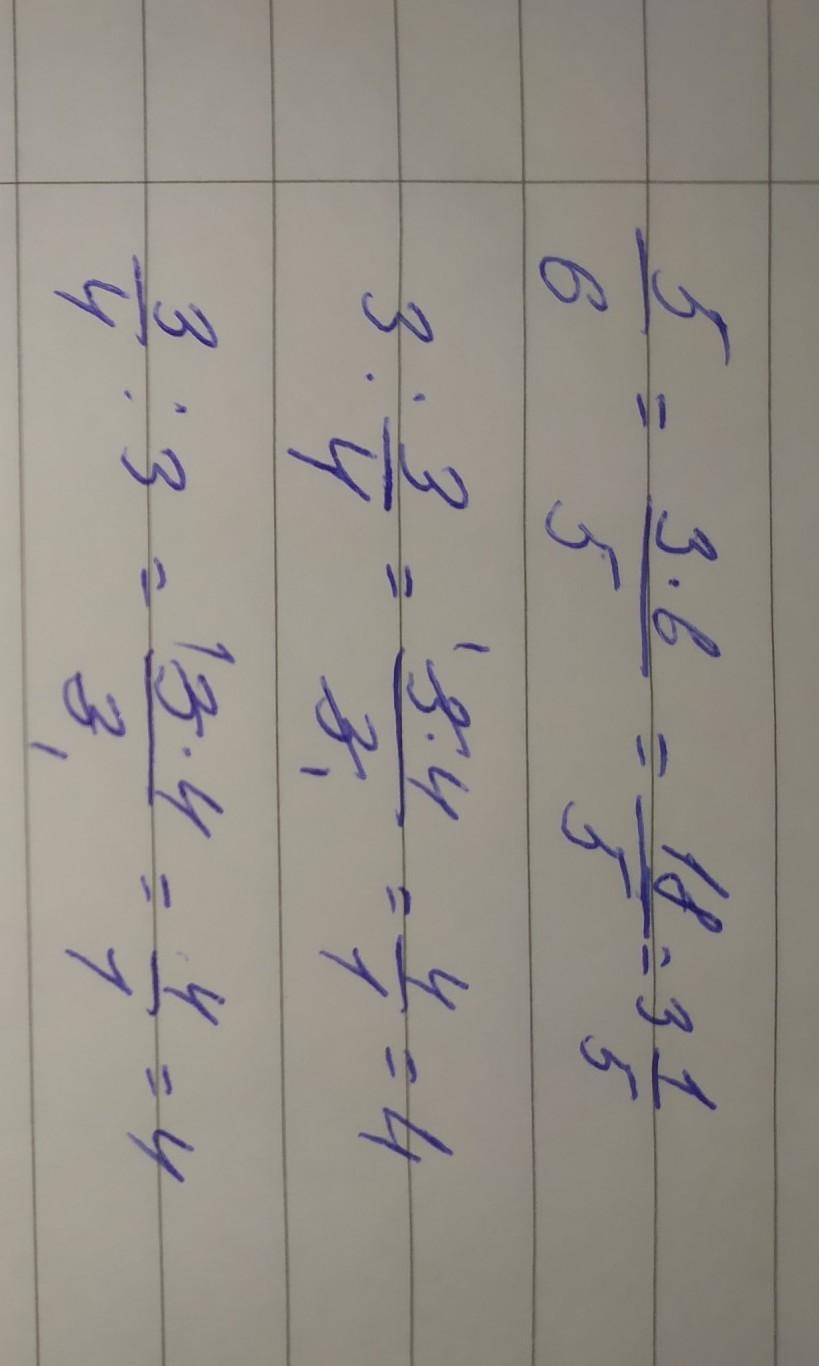 5/6 = 3·6/5 = 18/5 = 3 1/5
3 : 3/4 = 3·4/3 = 4/1 = 4
3/4 : 3 = 3·4/3 = 4/1 = 4